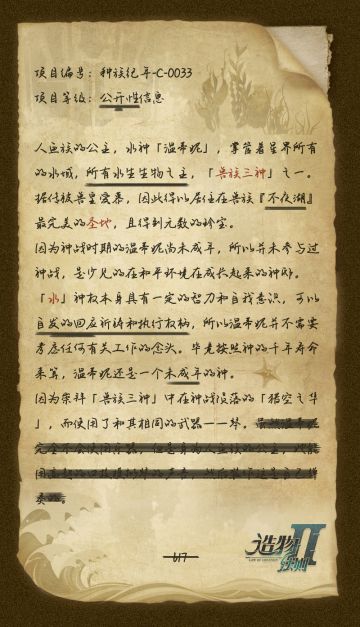 项目编号：种族纪年-C-0033
项目等级：公开性信息
人鱼族的公主，水神「温蒂妮」，掌管着星界所有
的水域，所有水生生物之主，「兽族三神」之一。
据传被兽皇爱慕，因此得以居住在兽族『不夜湖』
最完美的圣地，且得到无数的珍宝。
因为神战时期的温蒂妮尚未成年，所以并未参与过
神战，是少见的在和平环境在成长起来的神邸。
「水」神权本身具有一定的智力和自我意识，可以
自发的回应祈祷和执行权柄，所以温蒂妮并不需要
考虑任何有关工作的念头。毕竟按照神的千年寿命
来算，温蒂妮还是一个未成年的神。
因为崇拜「兽族三神」中在神战没落的「悟空之华
」，而使用了和其相同的武器——琴。虽然温蒂妮
完全不会使用乐器，但是身为人鱼族的公主，
617
造物II
法则